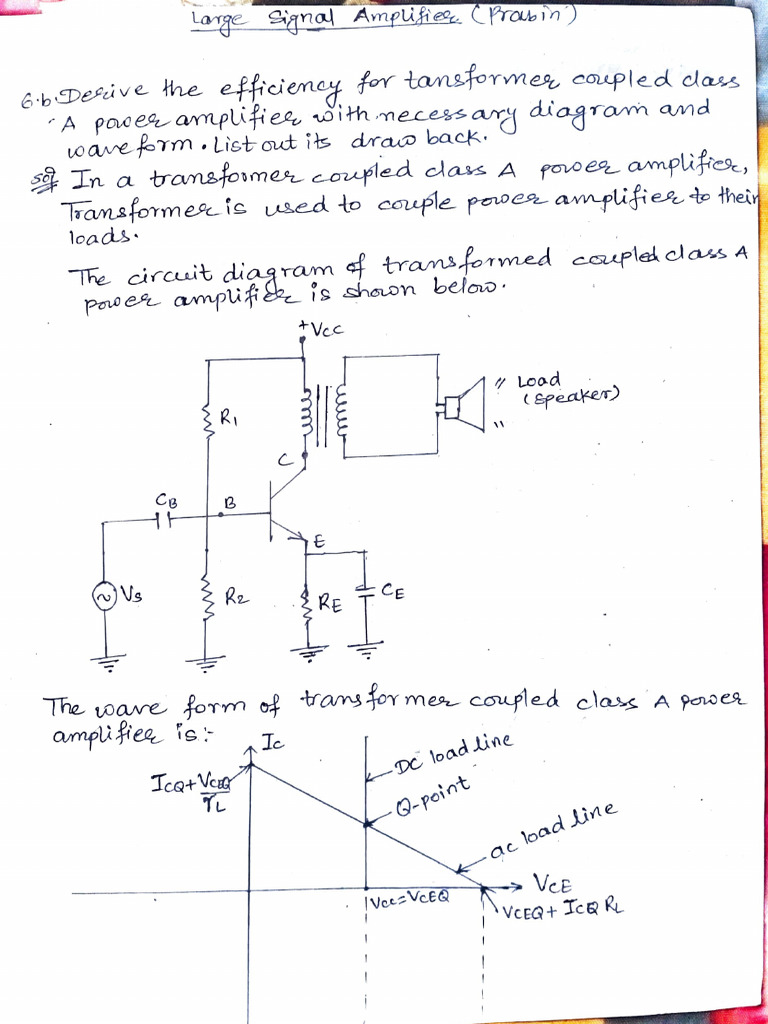 Large Signal Amplifier (Prabin)
6.b. Derive the efficiency for tansformer coupled class
A power amplifier with necessary diagram and
wave form. List out its draw back.
Solⁿ In a transformer coupled class A power amplifier,
Transformer is used to couple power amplifier to their
loads.
The circuit diagram of transformed coupled class A
power amplifier is shown below.
+Vcc
R1
" Load
(speaker)
"
C
CB
B
E
Vs
R2
RE
CE
The wave form of transformer coupled class A power
amplifier is:-
Ic
DC load line
ICQ + VCEQ
rL
Q-point
ac load line
VCE
Vcc = VCEQ
VCEQ + ICQ RL